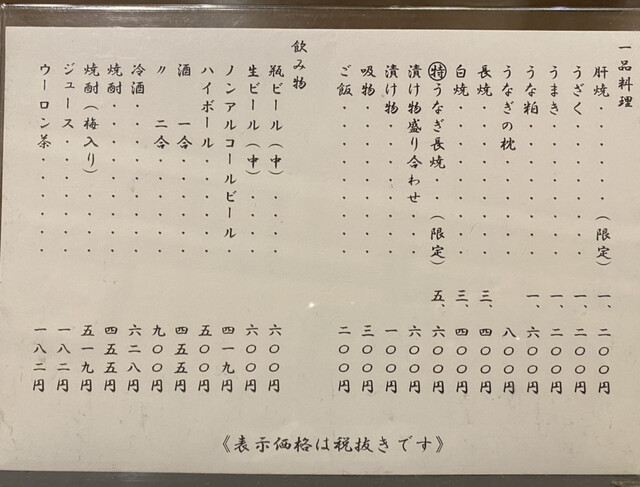 一品料理
肝焼・・・・・(限定)一、二〇〇円
うざく・・・・・・・一、二〇〇円
うまき・・・・・・・一、二〇〇円
うな粕・・・・・・・一、六〇〇円
うなぎの枕・・・・・八〇〇円
長焼・・・・・・・・三、四〇〇円
白焼・・・・・・・・三、四〇〇円
㊕うなぎ長焼・・(限定)五、六〇〇円
漬け物盛り合わせ・・四〇〇円
漬け物・・・・・・・一〇〇円
吸物・・・・・・・・三〇〇円
ご飯・・・・・・・・二〇〇円
飲み物
瓶ビール(中)・・・・六〇〇円
生ビール(中)・・・・六〇〇円
ノンアルコールビール・四一九円
ハイボール・・・・・五〇〇円
酒 一合・・・・・・四五五円
〃 二合・・・・・・九〇〇円
冷酒・・・・・・・・六二八円
焼酎・・・・・・・・四五五円
焼酎(梅入り)・・・・五一九円
ジュース・・・・・・一八二円
ウーロン茶・・・・・一八二円
《表示価格は税抜きです》